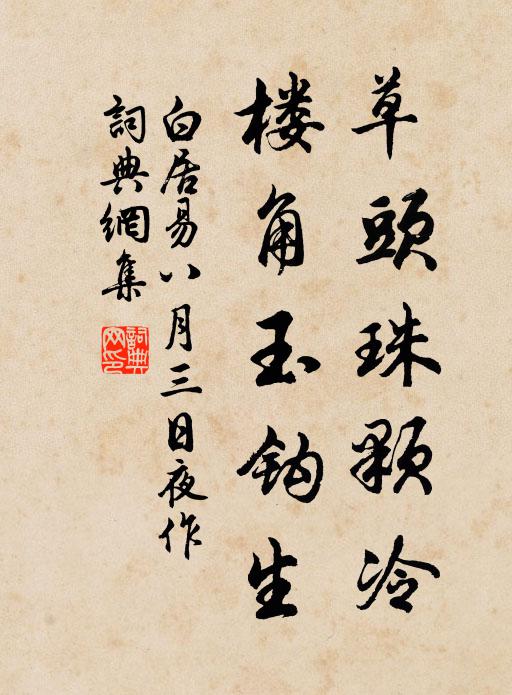 草頭珠顆冷
楼角玉钩生
白居易八月三日夜作
詞典網集
詞典网印